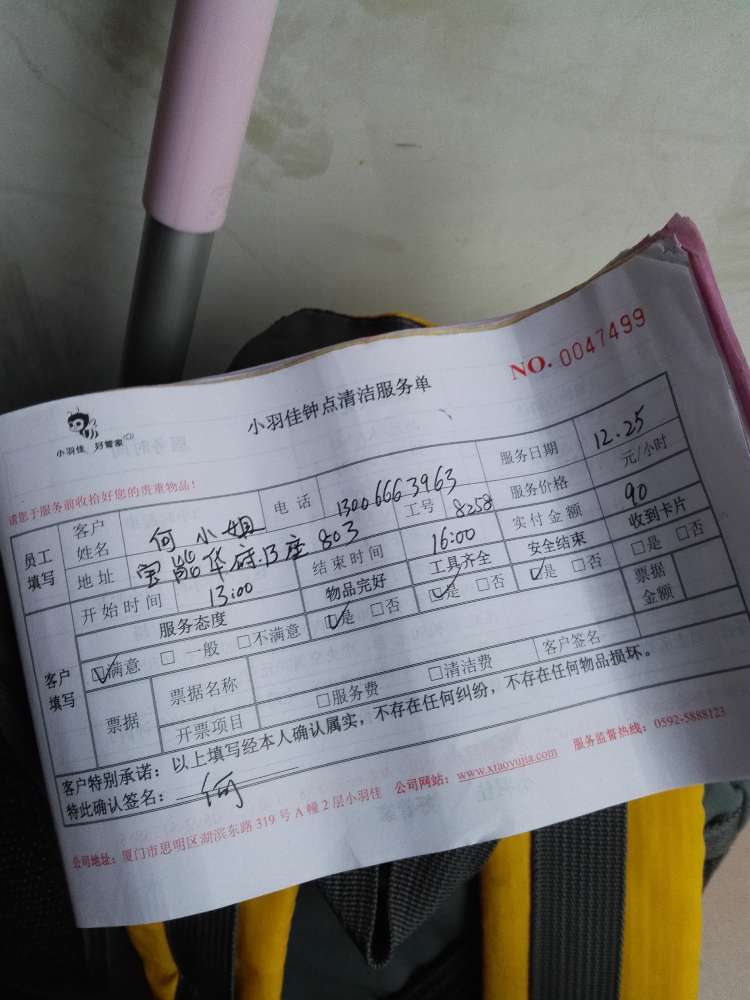 NO. 0047499
小羽佳 好管家
小羽佳钟点清洁服务单
请您于服务前收拾好您的贵重物品!
员工填写 客户姓名 何小姐 电话 13006663963 服务日期 12.25
地址 宝能华府B座803 工号 8258 服务价格 元/小时
开始时间 13:00 结束时间 16:00 实付金额 90
客户填写 服务态度 物品完好 工具齐全 安全结束 收到卡片
☑满意 □一般 □不满意 ☑是 □否 ☑是 □否 ☑是 □否 □是 □否
票据 票据名称 票据金额
开票项目 □服务费 □清洁费 客户签名
客户特别承诺:以上填写经本人确认属实,不存在任何纠纷,不存在任何物品损坏。
特此确认签名: 何
公司地址:厦门市思明区湖滨东路319号A幢2层小羽佳 公司网站:www.xiaoyujia.com 服务监督热线:0592-5888123